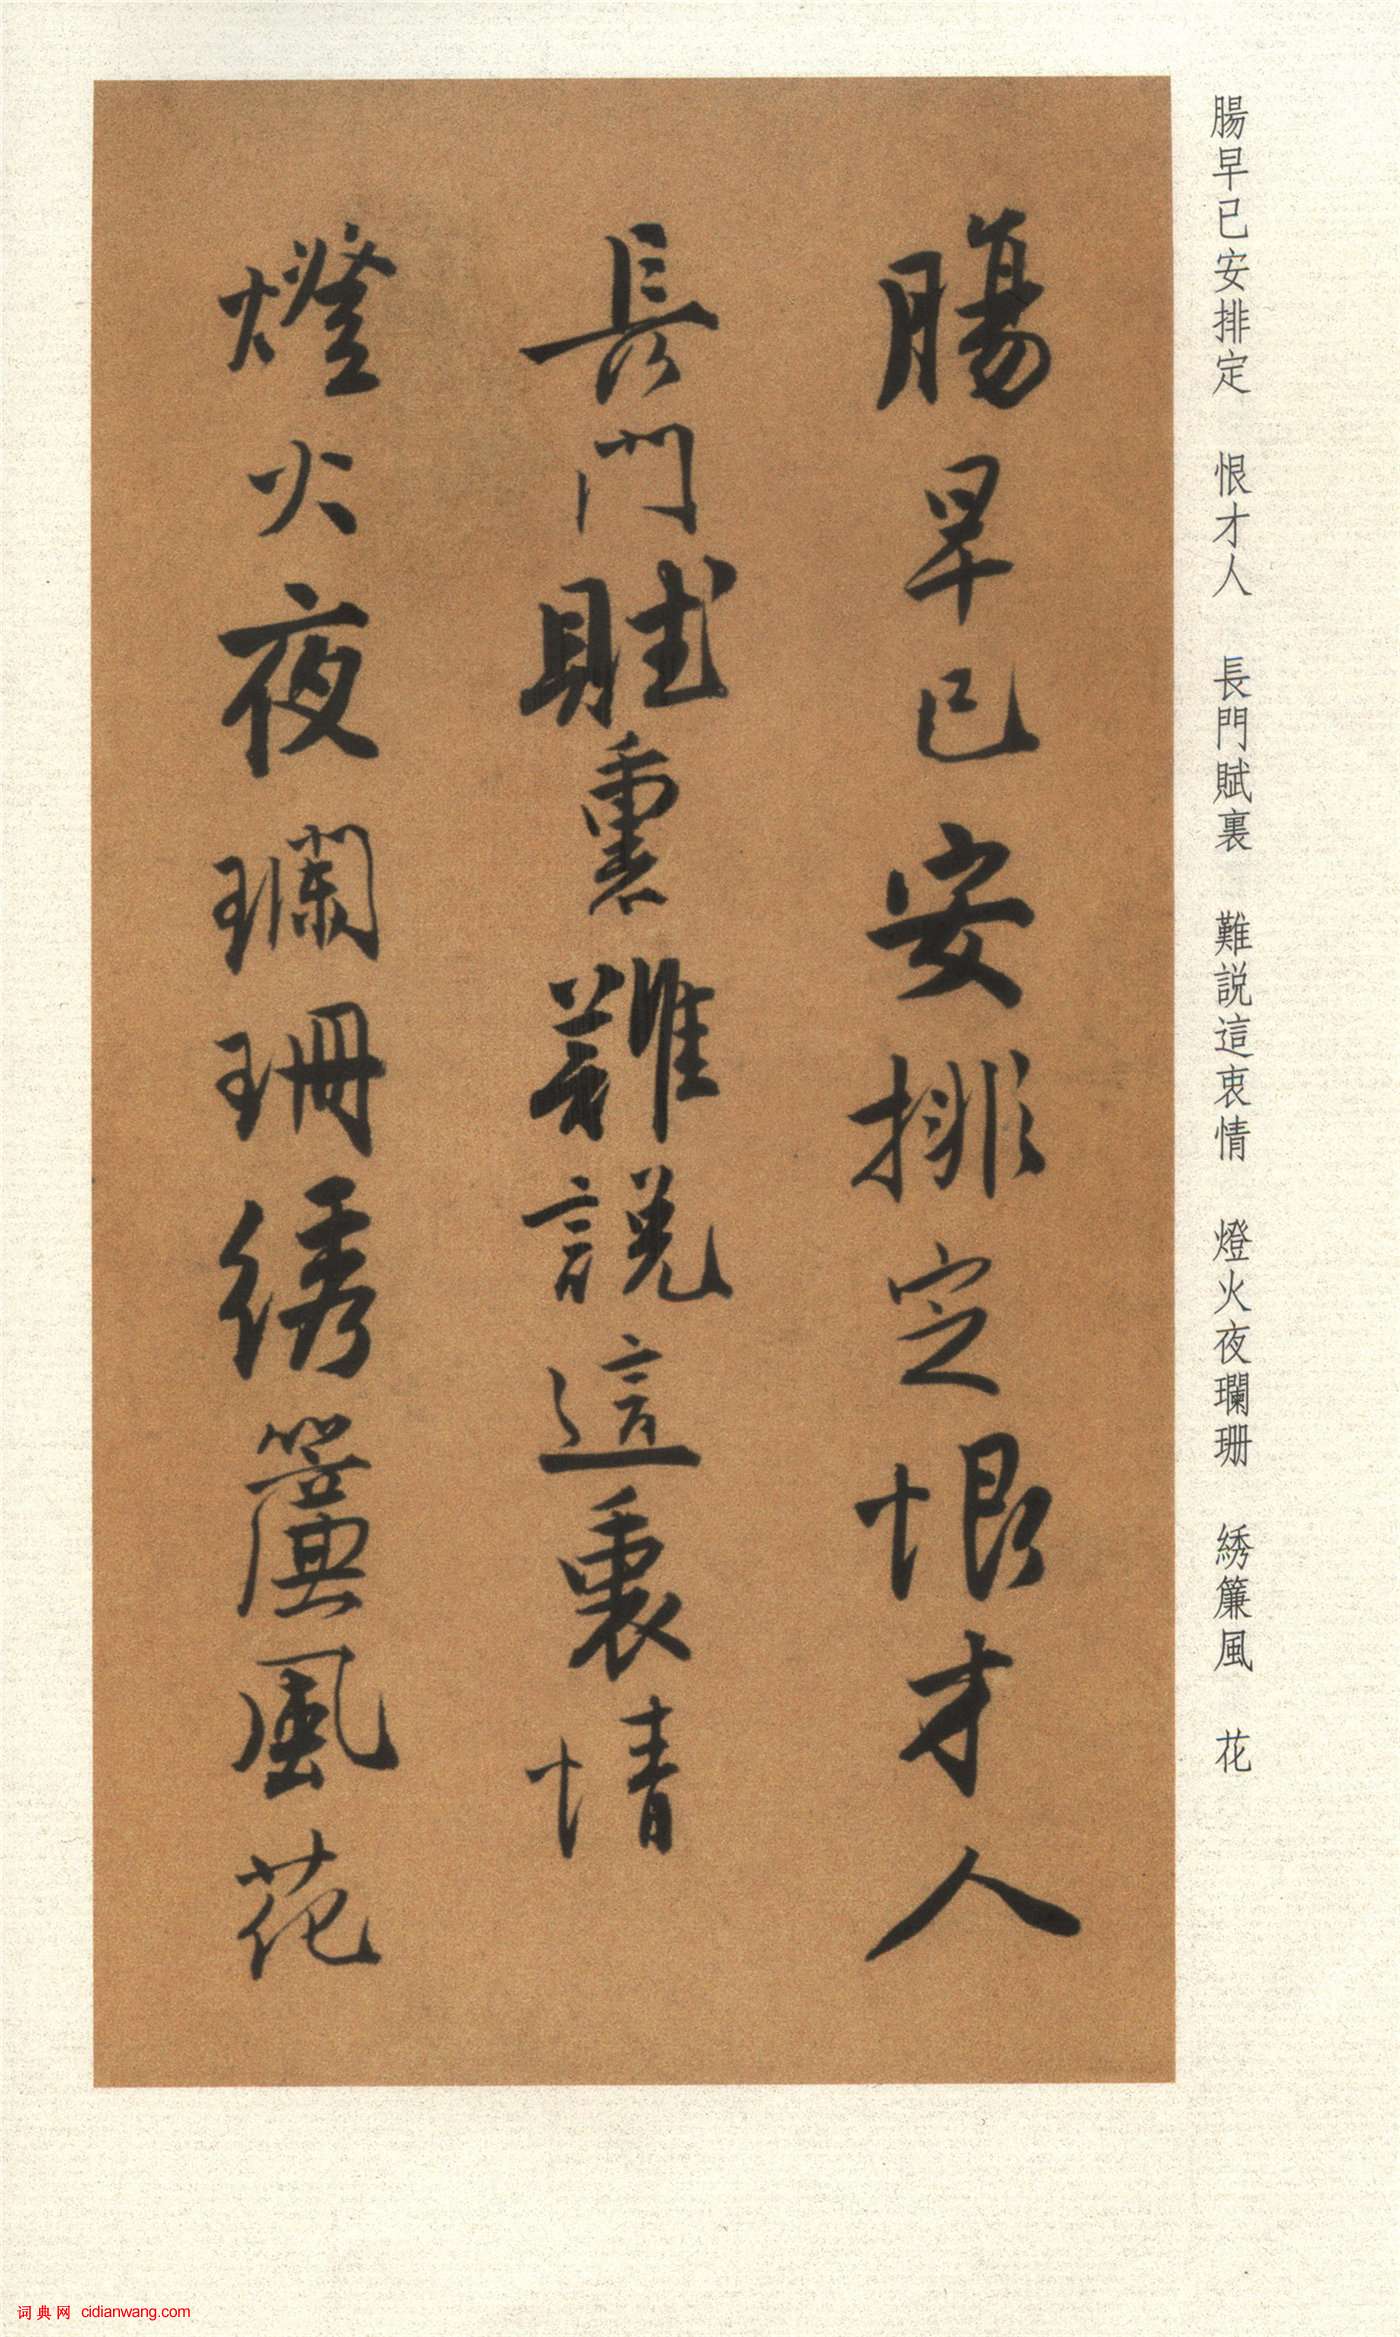 腸早已安排定　恨才人　長門賦裏　難説這衷情　燈火夜瓓珊　綉簾風　花
腸早已安排定恨才人
長門賦裏難説這衷情
燈火夜瓓珊綉簾風花
词典网 cidianwang.com